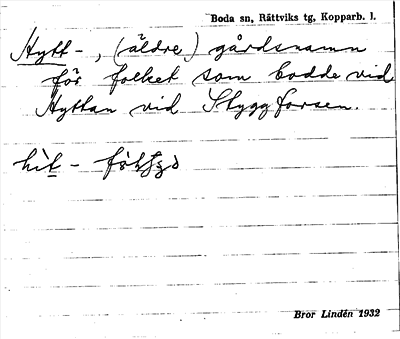 Boda sn, Rättviks tg, Kopparb. l.
Hytt-, (äldre) gårdsnamn
för folket som bodde vid
Hyttan vid Styggforsen.
hit -
Bror Lindén 1932